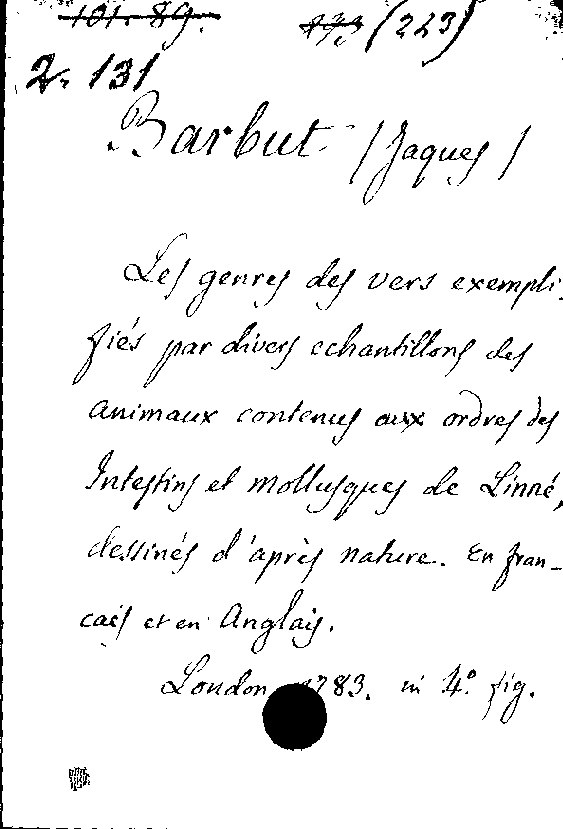 101. 89. 173 (223)
2. 131
Barbut (Jaques)
Les genres des vers exempli-
fiés par divers echantillons des
animaux contenus aux ordres des
Intestins et mollusques de Linné,
dessinés d'après nature. En fran-
çais et en Anglais.
London 1783. in 4° fig.